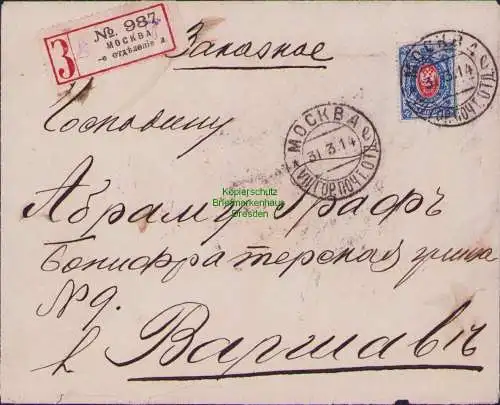 З
№. 987
МОСКВА
-е отдѣленіе д.
Заказное
МОСКВА
3.14
VII ГОР. ПОЧТ. ОТД.
МОСКВА
31.3.14
VII ГОР. ПОЧТ. ОТД.
Господину
Kopierschutz
Briefmarkenhaus
Dresden
Абраму Графъ
Бонифратерская улица
№ 9.
в Варшавѣ